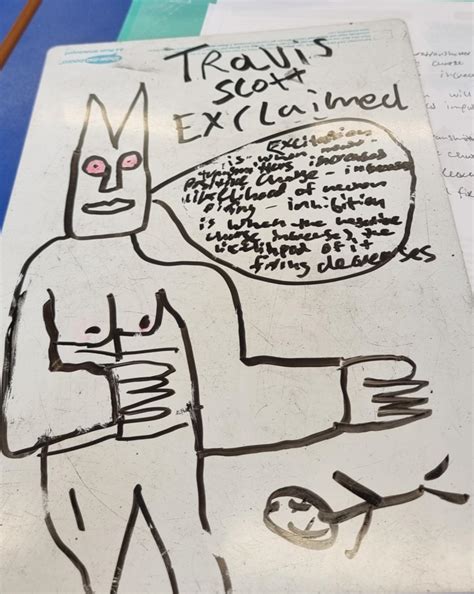 TRAVIS
SCOTT
EXCLAIMED
Excitation
is when neuro-
increased
positive charge - increases
likelihood of neuron
firing - inhibition
is when the negative
charge increases, the
likelihood of it
firing decreases
will